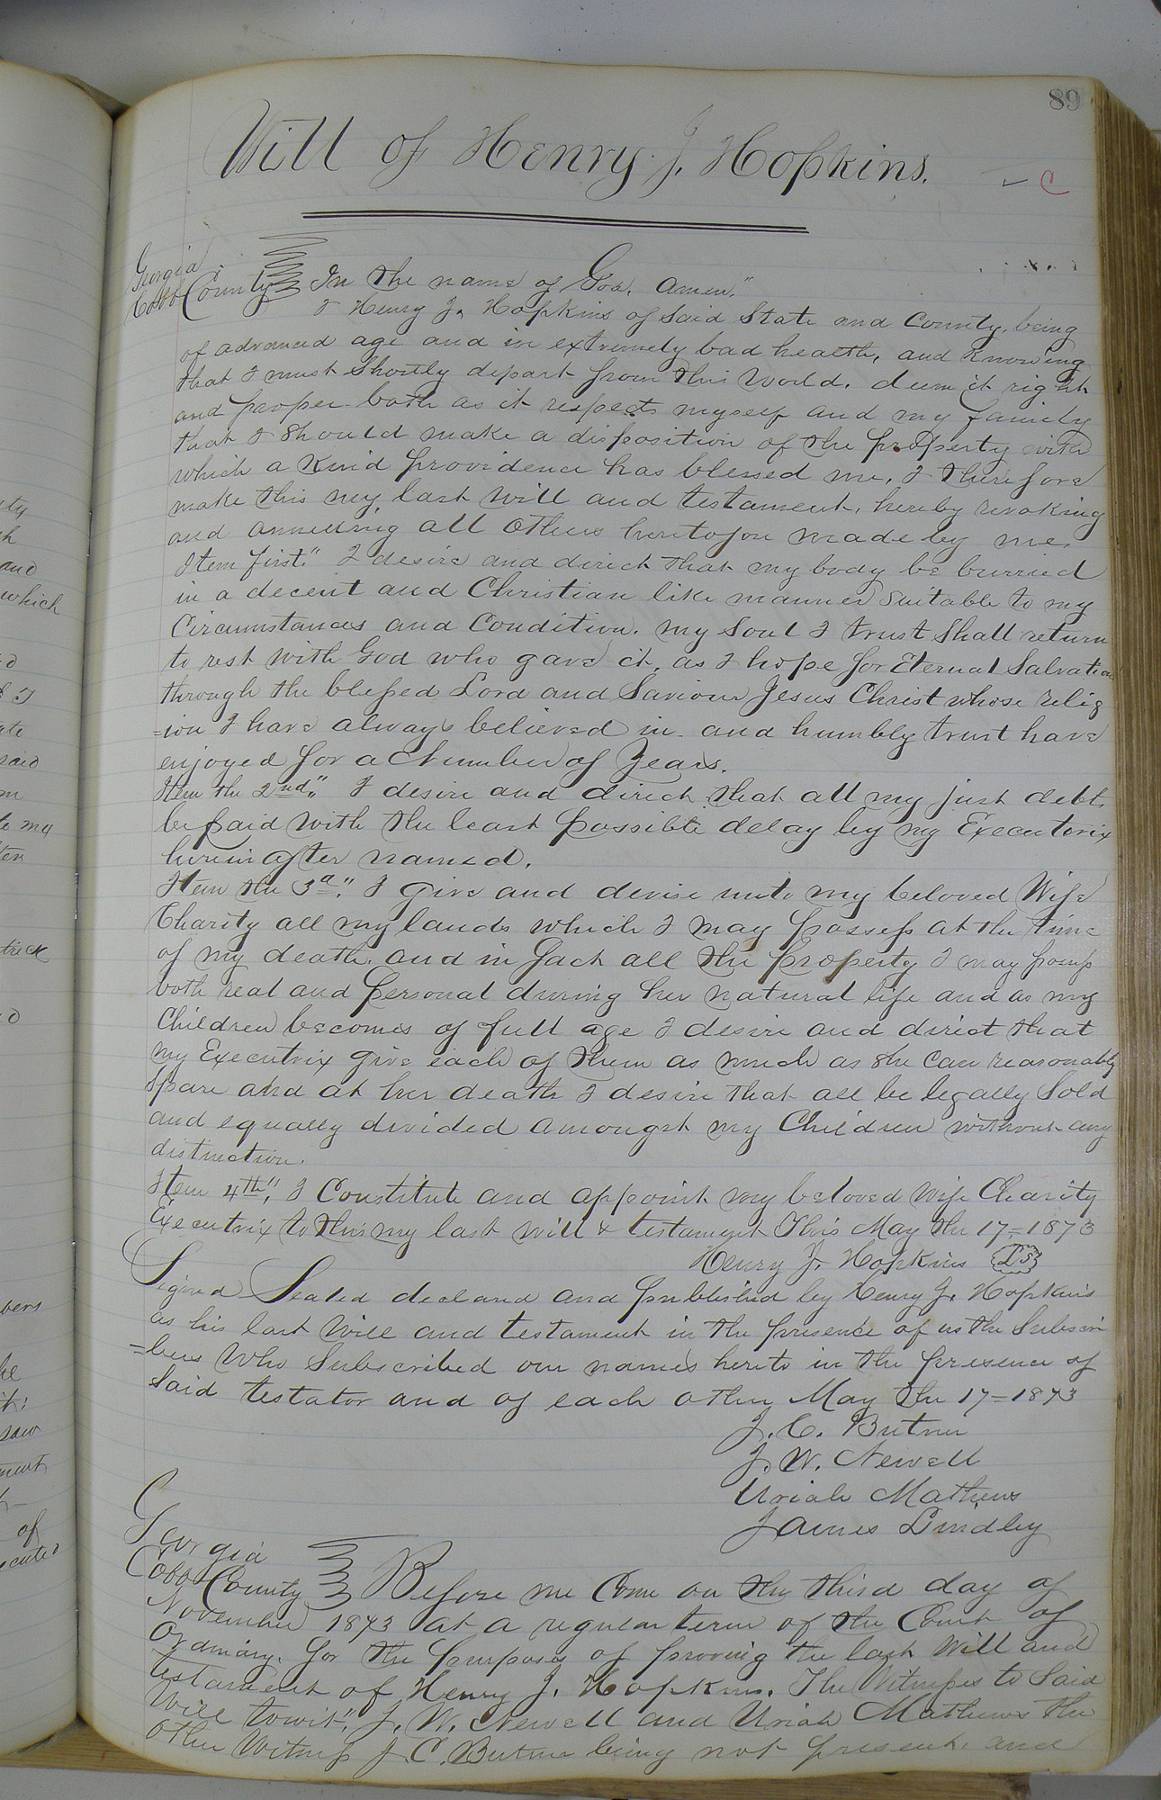 89
Will of Henry J. Hopkins.
C
Georgia
Cobb County In the name of God. Amen."
I Henry J. Hopkins of said State and County, being
of advanced age and in extremely bad health, and knowing
that I must shortly depart from this World. deem it right
and proper both as it respects myself and my family
that I should make a disposition of the property with
which a kind providence has blessed me, I therefore
make this my, last will and testament, hereby revoking
and annulling all others heretofore made by me.
Item first." I desire and direct that my body be burried
in a decent and Christian like manner suitable to my
Circumstances and Condition. my soul I trust shall return
to rest with God who gave it, as I hope for Eternal Salvation
through the blessed Lord and Saviour Jesus Christ whose relig
=ion I have always believed in and humbly trust have
enjoyed for a Number of Years.
Item the 2nd." I desire and direct that all my just debts
be paid with the least possible delay by my Executorix
hereinafter named.
Item the 3d." I give and devise unto my beloved Wife
Charity all my lands which I may possess at the time
of my death. and in fact all the property I may possess
both real and personal during her natural life and as my
Children becomes of full age I desire and direct that
my Executrix give each of them as much as she can reasonably
spare and at her death I desire that all be legally sold
and equally divided amongst my Children without any
distinction.
Item 4th", I Constitute and appoint my beloved wife Charity
Executrix to this my last will & testament This May the 17=1873
Henry J. Hopkins LS
Signed Sealed declared and published by Henry J. Hopkins
as his last will and testament in the presence of us the Subscri
=bers who Subscribed our names hereto in the presence of
said testator and of each other May the 17=1873
J. C. Butner
J. W. Newell
Uriah Mathews
James Lindley
Georgia
Cobb County Before me Come on the third day of
November 1873 at a regular term of the Court of
Ordinary. for the purposes of proving the last will and
testament of Henry J. Hopkins. The Witness to said
Will towit", J. W. Newell and Uriah Mathews the
other Witness J C. Butner being not present. and